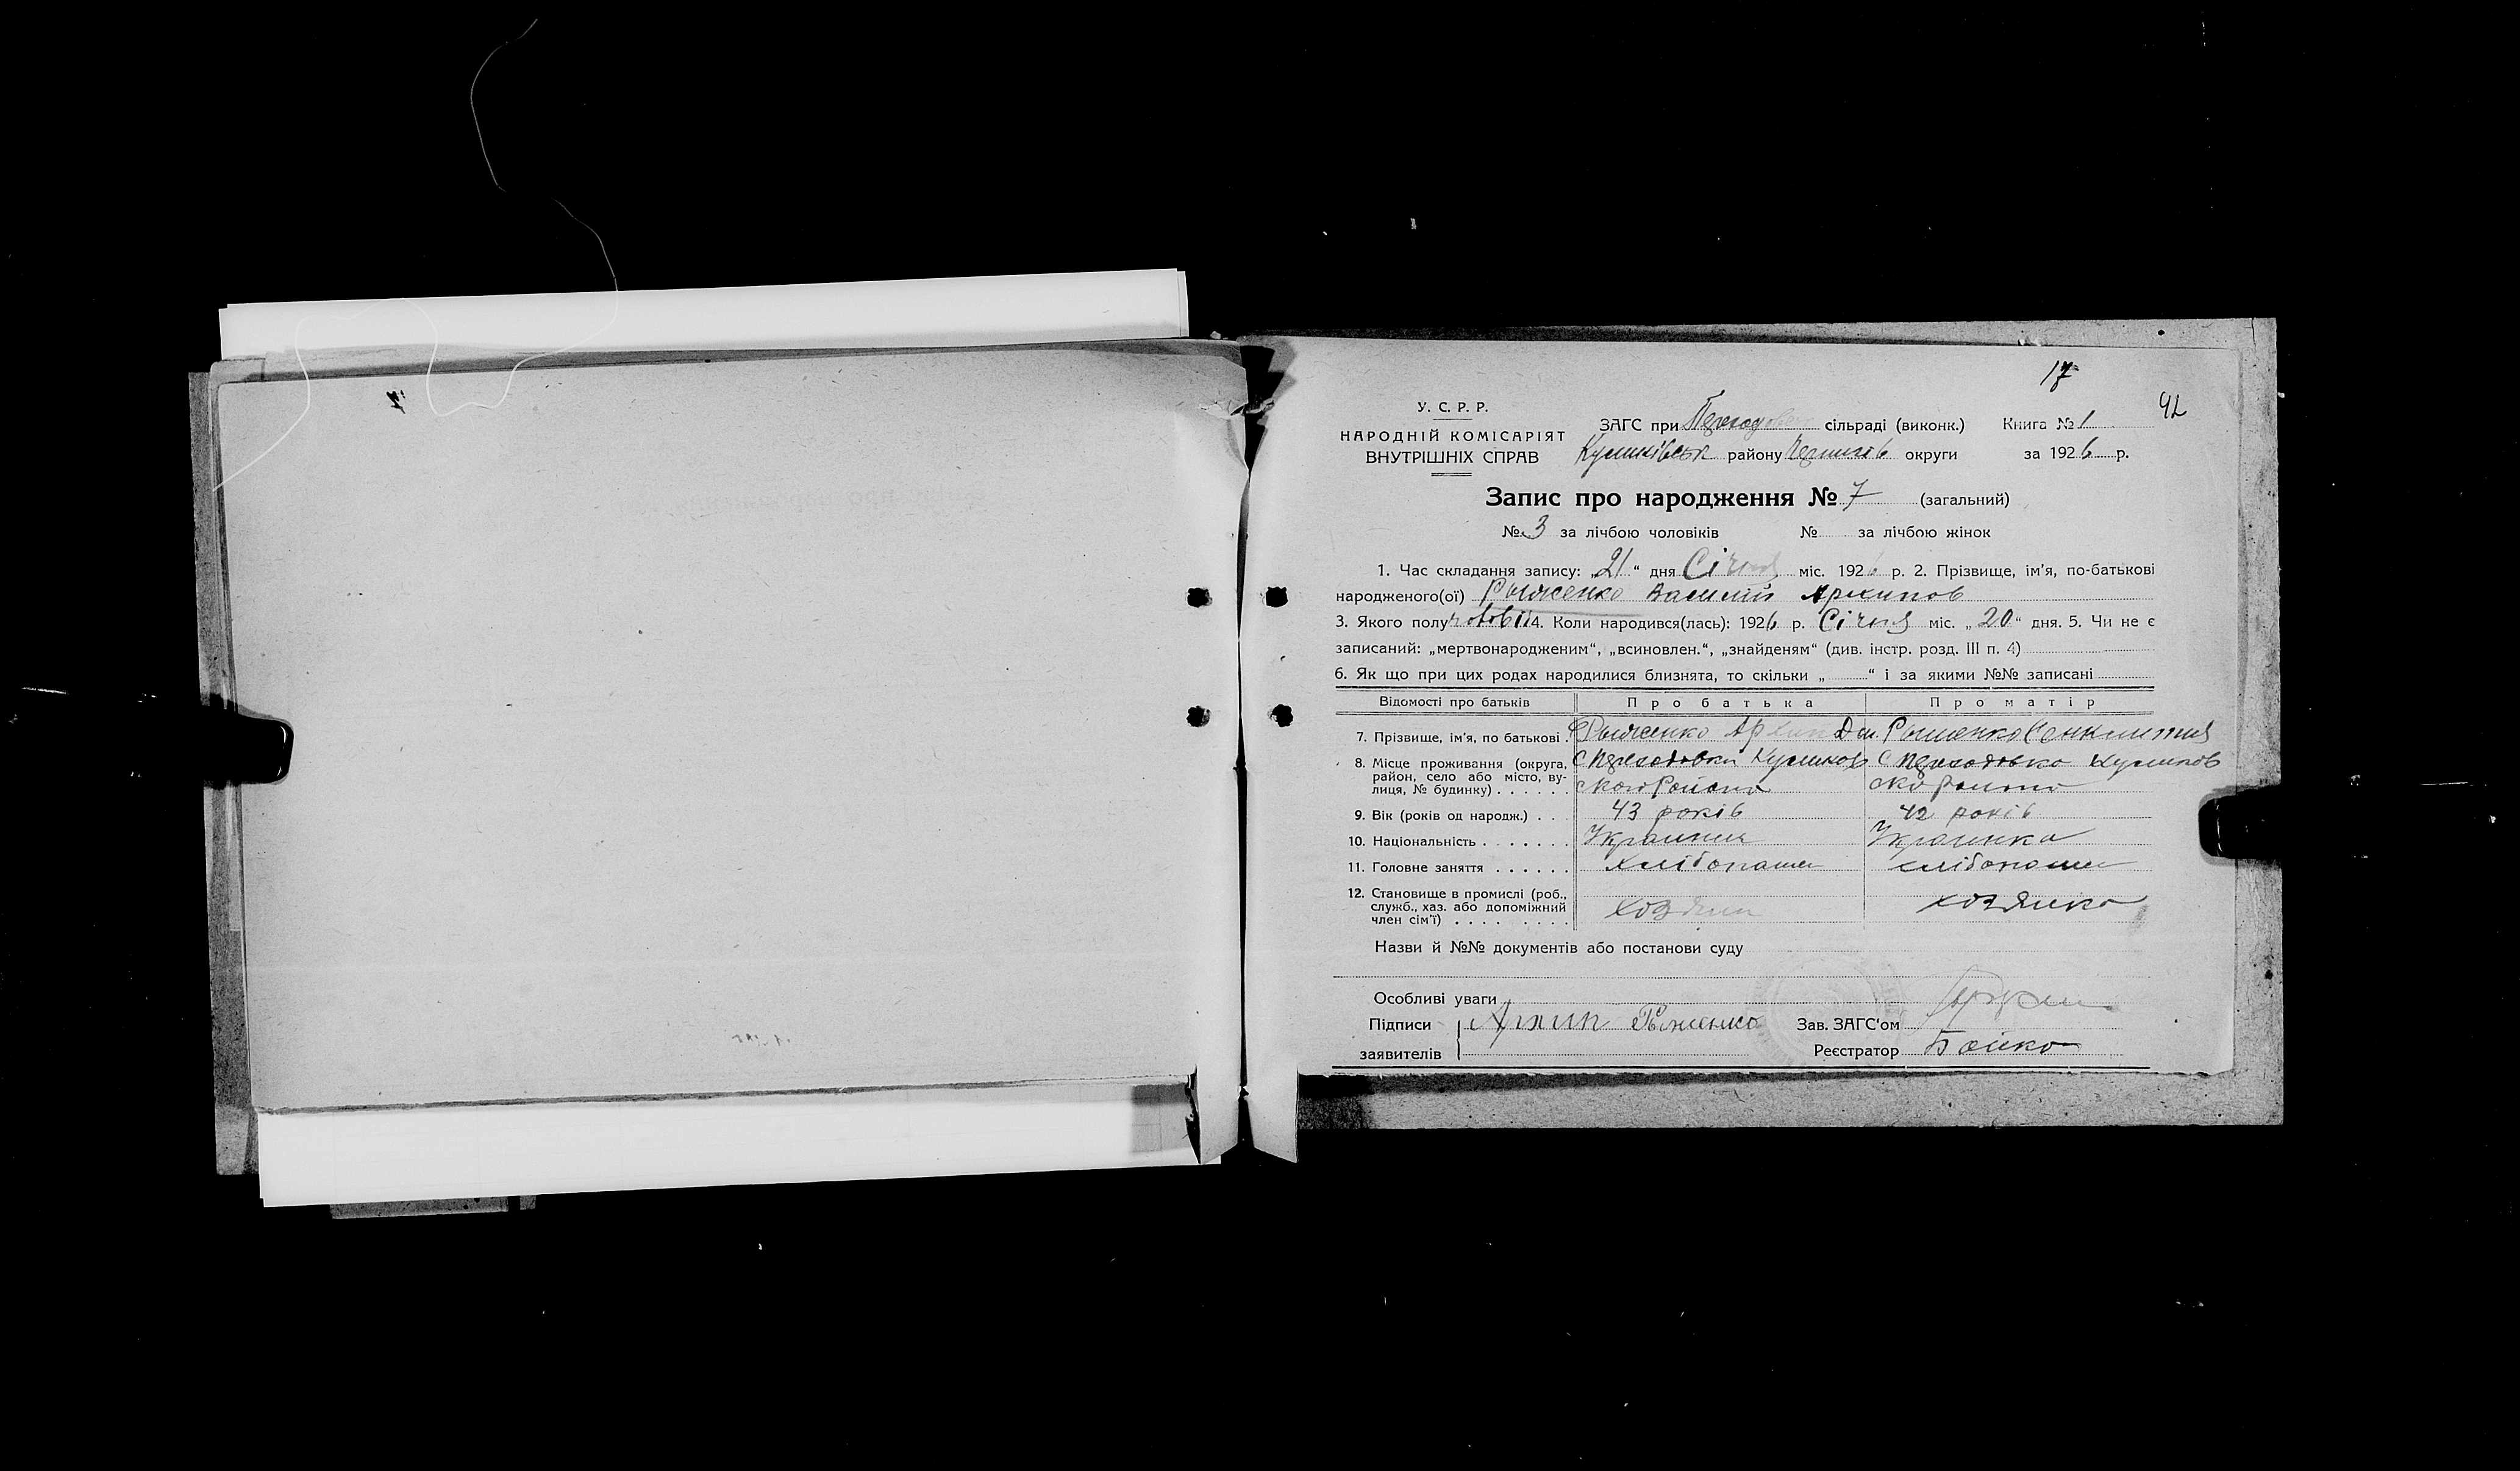 17
42
У. С. Р. Р.
НАРОДНІЙ КОМІСАРІЯТ
ВНУТРІШНІХ СПРАВ
ЗАГС при сільраді (виконк.) Книга № 1
Куликівськ району Чернигів округи за 1926 р.
Запис про народження № 7 (загальний)
№ 3 за лічбою чоловіків № за лічбою жінок
1. Час складання запису: „21“ дня Січня міс. 1926 р. 2. Прізвище, ім’я, по-батькові
народженого(ої) Рыженко Василій Архипов
3. Якого полу чоловічі 4. Коли народився(лась): 1926 р. Січня міс. „20“ дня. 5. Чи не є
записаний: „мертвонародженим“, „всиновлен.“, „знайденям“ (див. інстр. розд. III п. 4)
6. Як що при цих родах народилися близнята, то скільки „ “ і за якими №№ записані
Відомості про батьків Про батька Про матір
7. Прізвище, ім’я, по батькові . Рыженко Архип Рыженко
8. Місце проживання (округа, район, село або місто, вулиця, № будинку) . . . . . .
9. Вік (років од народж.) . . 43 років 42 років
10. Національність . . . . . . . Украинец Украинка
11. Головне заняття . . . . . . хлібопашец хлібопаш
12. Становище в промислі (роб., служб., хаз. або допоміжний член сім’ї) . . . . . . . . Хозяин хозяйка
Назви й №№ документів або постанови суду
Особливі уваги
Підписи Архип Рыженко Зав. ЗАГС‘ом
заявителів Реєстратор Бойко